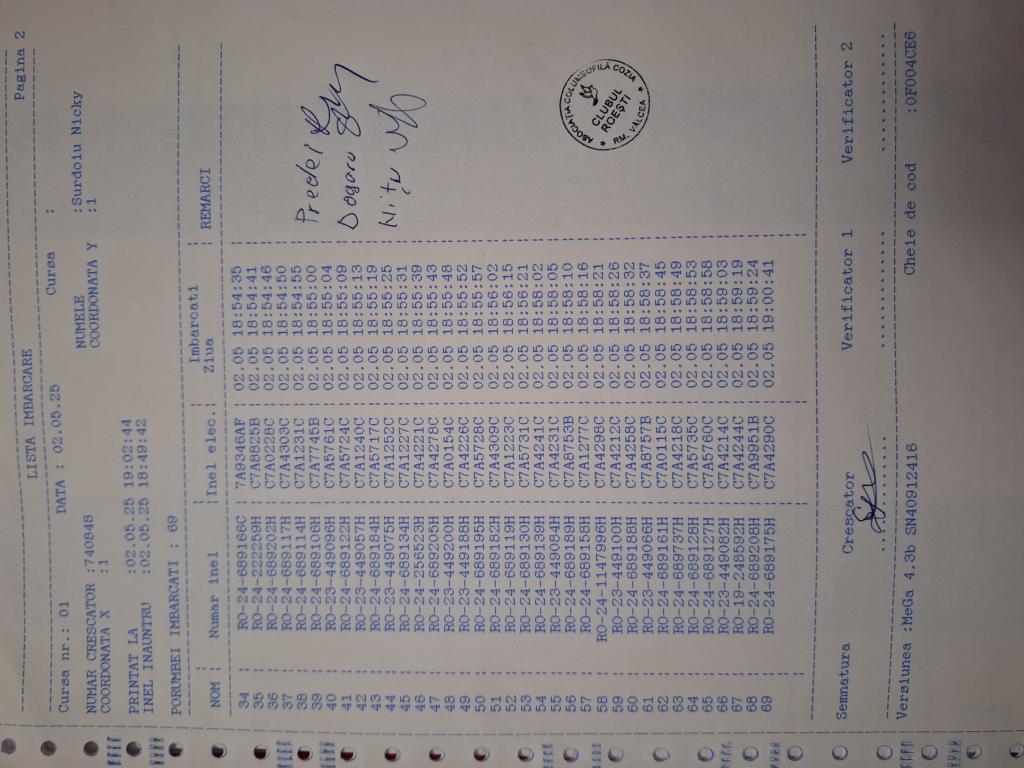 Pagina 2
LISTA IMBARCARE
Cursa nr.: 01 DATA : 02.05.25 Cursa :
NUMAR CRESCATOR :740848 NUMELE :Surdoiu Nicky
COORDONATA X :1 COORDONATA Y :1
PRINTAT LA :02.05.25 19:02:44
INEL INAUNTRU :02.05.25 18:49:42
PORUMBEI IMBARCATI : 69
Imbarcati
NOM : Numar inel : Inel elec.: Ziua : REMARCI
34 : RO-24-689166C : 7A9346AF : 02.05 18:54:35 :
35 : RO-24-222259H : C7A8825B : 02.05 18:54:41 :
36 : RO-24-689202H : C7A0228C : 02.05 18:54:46 :
37 : RO-24-689117H : C7A4303C : 02.05 18:54:50 :
38 : RO-24-689114H : C7A1231C : 02.05 18:54:55 :
39 : RO-24-689106H : C7A7745B : 02.05 18:55:00 :
40 : RO-23-449096H : C7A5761C : 02.05 18:55:04 :
41 : RO-24-689122H : C7A5724C : 02.05 18:55:09 :
42 : RO-23-449057H : C7A1240C : 02.05 18:55:13 :
43 : RO-24-689184H : C7A5717C : 02.05 18:55:19 :
44 : RO-23-449075H : C7A1252C : 02.05 18:55:25 :
45 : RO-24-689134H : C7A1227C : 02.05 18:55:31 :
46 : RO-24-258523H : C7A4221C : 02.05 18:55:39 :
47 : RO-24-689205H : C7A4278C : 02.05 18:55:43 :
48 : RO-23-449200H : C7A0154C : 02.05 18:55:48 :
49 : RO-24-689188H : C7A4226C : 02.05 18:55:52 :
50 : RO-24-689195H : C7A5728C : 02.05 18:55:57 :
51 : RO-24-689182H : C7A4309C : 02.05 18:56:02 :
52 : RO-24-689119H : C7A1223C : 02.05 18:56:15 :
53 : RO-24-689130H : C7A5731C : 02.05 18:56:21 :
54 : RO-24-689139H : C7A4241C : 02.05 18:58:02 :
55 : RO-23-449084H : C7A4259C : 02.05 18:58:05 :
56 : RO-24-689189H : C7A8753B : 02.05 18:58:10 :
57 : RO-24-689158H : C7A1277C : 02.05 18:58:16 :
58 : RO-24-1147996H : C7A4298C : 02.05 18:58:21 :
59 : RO-23-449100H : C7A4212C : 02.05 18:58:26 :
60 : RO-24-689186H : C7A4258C : 02.05 18:58:32 :
61 : RO-23-449066H : C7A8757B : 02.05 18:58:37 :
62 : RO-24-689161H : C7A0115C : 02.05 18:58:45 :
63 : RO-24-689737H : C7A4218C : 02.05 18:58:49 :
64 : RO-24-689128H : C7A5735C : 02.05 18:58:53 :
65 : RO-24-689127H : C7A5760C : 02.05 18:58:58 :
66 : RO-23-449082H : C7A4214C : 02.05 18:59:03 :
67 : RO-19-248592H : C7A4244C : 02.05 18:59:19 :
68 : RO-24-689208H : C7A9951B : 02.05 18:59:24 :
69 : RO-24-689175H : C7A4290C : 02.05 19:00:41 :
Predei
Dogaru
Nițu
ASOCIAȚIA COLUMBOFILĂ COZIA
CLUBUL
ROEȘTI
* RM. VALCEA *
Semnatura Crescator Verificator 1 Verificator 2
Versiunea :MeGa 4.3b SN40912416 Cheie de cod :0F004CE6